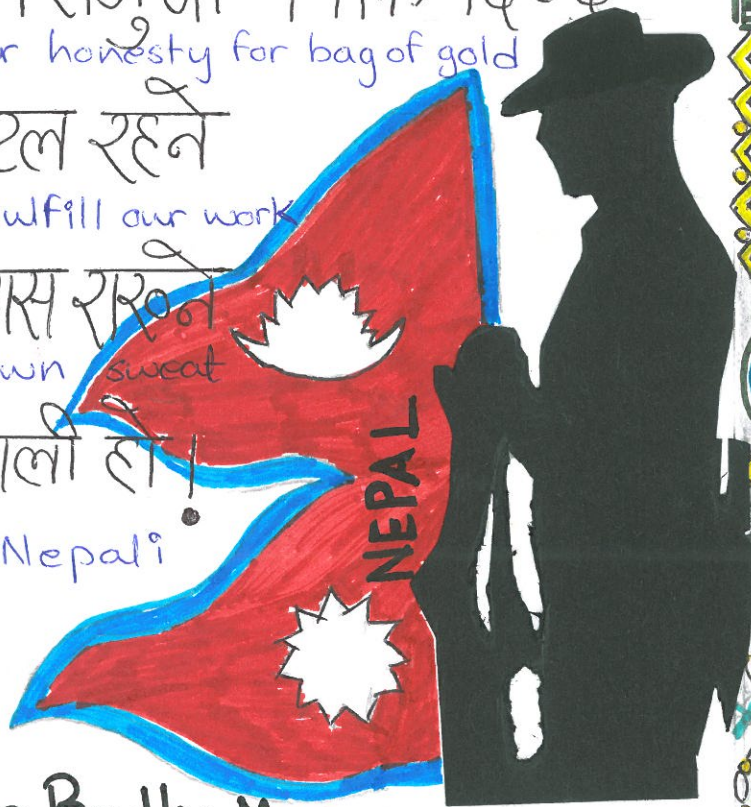 r honesty for bag of gold
टल रहने
ulfill our work
ास राख्ने
wn sweat
ाली हो!
Nepali
NEPAL